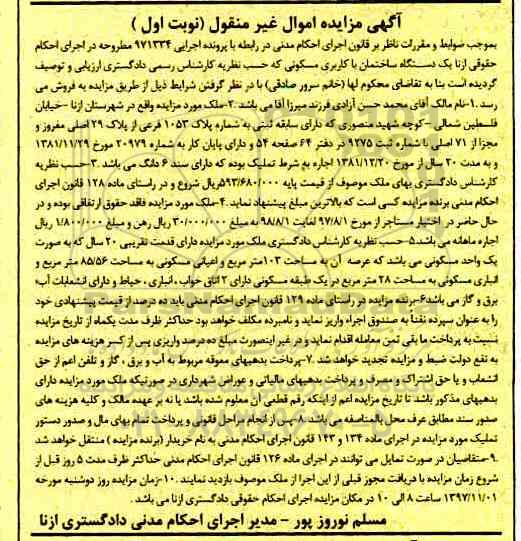 آگهی مزایده اموال غیر منقول (نوبت اول )
بموجب ضوابط و مقررات ناظر بر قانون اجرای احکام مدنی در رابطه با پرونده اجرایی ۹۷۱۳۳۴ مطروحه در اجرای احکام
حقوقی ازنا یک دستگاه ساختمان با کاربری مسکونی که حسب نظریه کارشناس رسمی دادگستری ارزیابی و توصیف
گردیده است بنا به تقاضای محکوم لها (خانم سرور صادقی) با در نظر گرفتن شرایط ذیل از طریق مزایده به فروش می
رسد .۱-نام مالک آقای محمد حسن آزادی فرزند میرزا آقا می باشد .۲-ملک مورد مزایده واقع در شهرستان ازنا –خیابان
فلسطین شمالی –کوچه شهید منصوری که دارای سابقه ثبتی به شماره پلاک ۱۰۵۳ فرعی از پلاک ۲۹ اصلی مفروز و
مجزا از ۷۱ اصلی با شماره ثبت ۹۲۷۵ در دفتر ۶۴ صفحه ۵۴ و دارای پایان کار به شماره ۲۰۹۷۹ مورخ ۱۳۸۱/۱۱/۲۹
و به مدت ۲۰ سال از مورخ ۱۳۸۱/۱۲/۲۰ اجاره به شرط تملیک بوده که دارای سند ۶ دانگ می باشد .۳-حسب نظریه
کارشناس دادگستری بهای ملک موصوف از قیمت پایه ۵۹۳/۶۸۰/۰۰۰ریال شروع و در راستای ماده ۱۲۸ قانون اجرای
احکام مدنی برنده مزایده کسی است که بالاترین مبلغ پیشنهاد نماید .۴-ملک مورد مزایده فاقد حقوق ارتفاقی بوده و در
حال حاضر در اختیار مستاجر از مورخ ۹۷/۸/۱ لغایت ۹۸/۸/۱ به مبلغ ۳۰/۰۰۰/۰۰۰ ریال رهن و مبلغ ۱/۸۰۰/۰۰۰ ریال
اجاره ماهانه می باشد.۵-حسب نظریه کارشناس دادگستری ملک مورد مزایده دارای قدمت تقریبی ۲۰ سال که به صورت
یک واحد مسکونی می باشد که عرصه آن به مساحت ۱۰۳متر مربع و اعیانی مسکونی به مساحت ۸۵/۵۶ متر مربع و
انباری مسکونی به مساحت ۲۸ متر مربع در یک طبقه مسکونی دارای ۲ اتاق خواب ، انباری ، حیاط و دارای انشعابات آب؛
برق و گاز می باشد۶-برنده مزایده در راستای ماده ۱۲۹ قانون اجرای احکام مدنی باید ده درصد از قیمت پیشنهادی خود
را به عنوان سپرده نقدآ به صندوق اجراء واریز نماید و نامبرده مکلف خواهد بود حداکثر ظرف مدت یکماه از تاریخ مزایده
نسبت به پرداخت ما بقی ثمن معامله اقدام نماید و در غیر اینصورت مبلغ ده درصد واریزی پس از کسر هزینه های مزایده
به نفع دولت ضبط و مزایده تجدید خواهد شد .۷-پرداخت بدهیهای معوقه مربوط به آب و برق ، گاز و تلفن اعم از حق
انشعاب و یا حق اشتراک و مصرف و پرداخت بدهیهای مالیاتی و عوارض شهرداری در صورتیکه ملک مورد مزایده دارای
بدهیهای مذکور باشد تا تاریخ مزایده اعم از اینکه رقم قطعی آن معلوم شده باشد یا نه بر عهده مالک و کلیه هزینه های
سند مطابق عرف محل بالمناصفه می باشد پس از انجام مراحل قانونی و پرداخت تمام بهای مال و صدور دستور
تملیک مورد مزایده در اجرای ماده ۱۳۴ و ۱۴۳ قانون اجرای احکام مدنی به نام خریدار (برنده مزایده ) منتقل خواهد شد
.۹-متقاضیان در صورت تمایل می توانند در اجرای ماده ۱۲۶ قانون اجرای احکام مدنی حداکثر ظرف مدت ۵ روز قبل از
شروع زمان مزایده با دریافت مجوز قبلی از این اجرا از ملک موصوف بازدید نمایند .۱۰-زمان مزایده روز دوشنبه مورخه
۱۳۹۷/۱۱/۰۱ ساعت ۸ الی ۱۰ در مکان مزایده اجرای احکام حقوقی دادگستری ازنا می باشد .
مسلم نوروز پور – مدیر اجرای احکام مدنی دادگستری ازنا